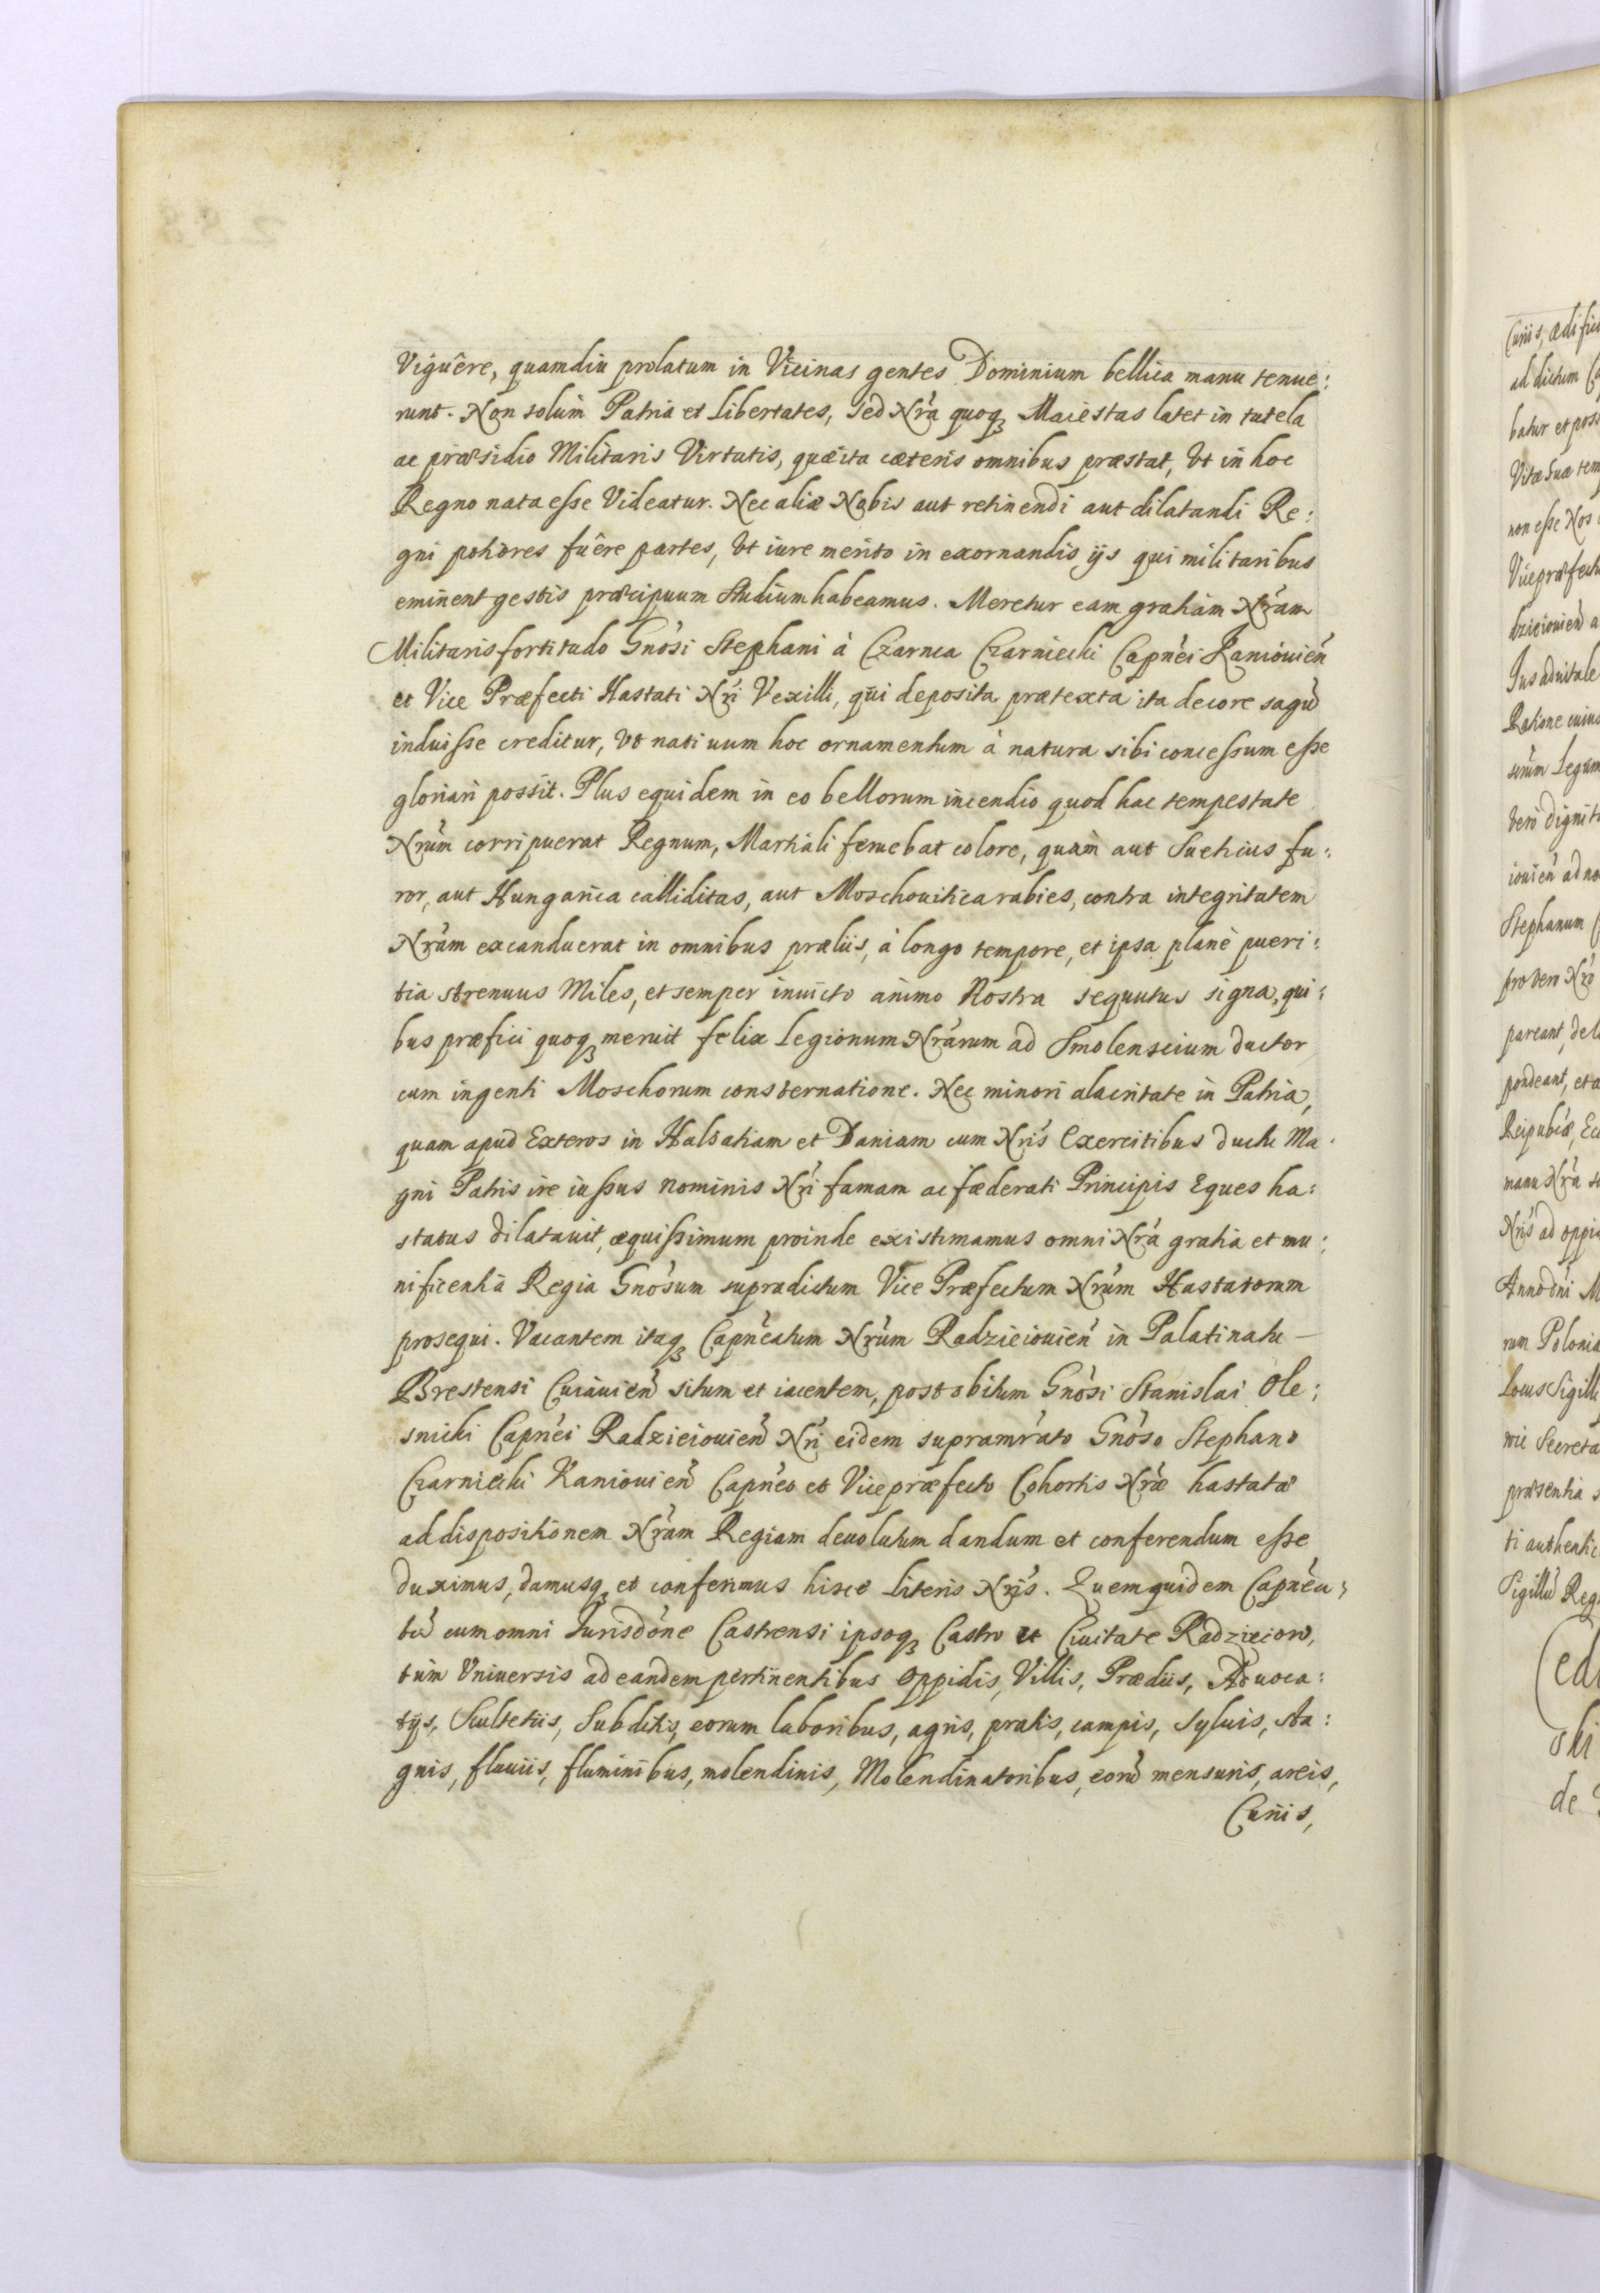 Viguêre, quamdiu prolatum in Vicinas gentes Dominium bellica manu tenue:
runt. Non solùm Patria et Libertates, sed Nr̃a quoqꝫ Maiestas latet in tutela
ac præsidio Militaris Virtutis, quæ ita cæteris omnibus præstat, Vt in hoc
Regno nata eſse Videatur. Nec aliæ Nobis aut retinendi aut dilatandi Re:
gni potiores fuêre partes, Vt iure merito in exornandis ijs qui militaribus
eminent gestis præcipuum studium habeamus. Meretur eam gratiam Nr̃am
Militaris fortitudo Gnõsi Stephani à Czarnca Czarniecki Capnẽi Kaniouieñ
et Vice Præfecti Hastati Nr̃i Vexilli, qui deposita prætexta ita decore sagũ
induiſse creditur, Vt natiuum hoc ornamentum à natura sibi conceſsum eſse
gloriari possit. Plus equidem in eo bellorum incendio quod hac tempestate
Nr̃um corripuerat Regnum, Martiali feruebat colore, quàm aut Suetticus fu:
ror, aut Hungarica calliditas, aut Moschouitica rabies, contra integritatem
Nr̃am excanduerat in omnibus præliis, à longo tempore, et ipsa planè pueri:
tia strenuus Miles, et semper inuicto animo Nostra sequutus signa, qui:
bus præfici quoqꝫ meruit felix Legionum Nr̃arum ad Smolenscium ductor
cum ingenti Moschorum consternatione. Nec minori alacritate in Patria,
quam apud Exteros in Halsatiam et Daniam cum Nr̃is Exercitibus ductu Ma:
gni Patris ire iuſsus nominis Nr̃i famam ac fæderati Principis Eques ha:
status dilatauit, æquiſsimum proinde existimamus omni Nr̃a gratia et mu:
nificentiâ Regia Gnõsum supradictum Vice Præfectum Nr̃um Hastatorum
prosequi. Vacantem itaqꝫ Capnẽatum Nr̃um Radzieiouieñ in Palatinatu –
Brestensi Cuiauieñ situm et iacentem, post obitum Gnõsi Stanislai Ole:
snicki Capnẽi Radzieiouieñ Nr̃i eidem supramr̃ato Gnõso Stephano
Czarniecki Kaniouieñ Capnẽo et Vice præfecto Cohortis Nr̃æ hastatæ
ad dispositionem Nr̃am Regiam deuolutum dandum et conferendum eſse
duximus, damusqꝫ et conferimus hisce Literis Nr̃is. Quem quidem Capnẽa:
tũ cum omni Iurisdõne Castrensi ipsoqꝫ Castro et Ciuitate Radzieiow,
tùm Vniuersis ad eandem pertinentibus Oppidis, Villis, Prædiis, Aduoca:
tijs, Scultetiis, Subditis, eorum laboribus, agris, pratis, campis, Syluis, sta:
gnis, fluuiis, fluminibus, molendinis, Molendinatoribus, eorũ mensuris, areis,
Curiis,
Curiis, ædifici
ad dictum
batur et poss
Vitæ suæ tem
non eſse Nos
Vicepræfectu
dzieiouieñ a
Ius aduitale
Ratione cuius
Legum
vero dignit
iouieñ ad no
Stephanum
pro vero Nr̃o
pareant, de
pondeant, et a
manu Nr̃a
Nr̃is ad oppi
Anno dñi M
rum Poloniæ
Locus Sigilli
Secreta
præsentia
ti authentic
Sigillũ Reg
ski
de